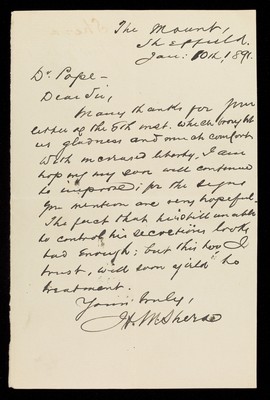 The Mount,
Sheffield.
Jan: 10th, 1891.
Dr. Pope—
Dear Sir,
Many thanks for your
letter of the 5th inst. which brought
us gladness and much comfort
With increased liberty, I am
hoping my son will continue
to improve; for the signs
you mention are very hopeful—
The fact that he is still unable
to control his secretions looks
bad enough; but this too I
trust, will soon yield to
treatment.
Yours truly,